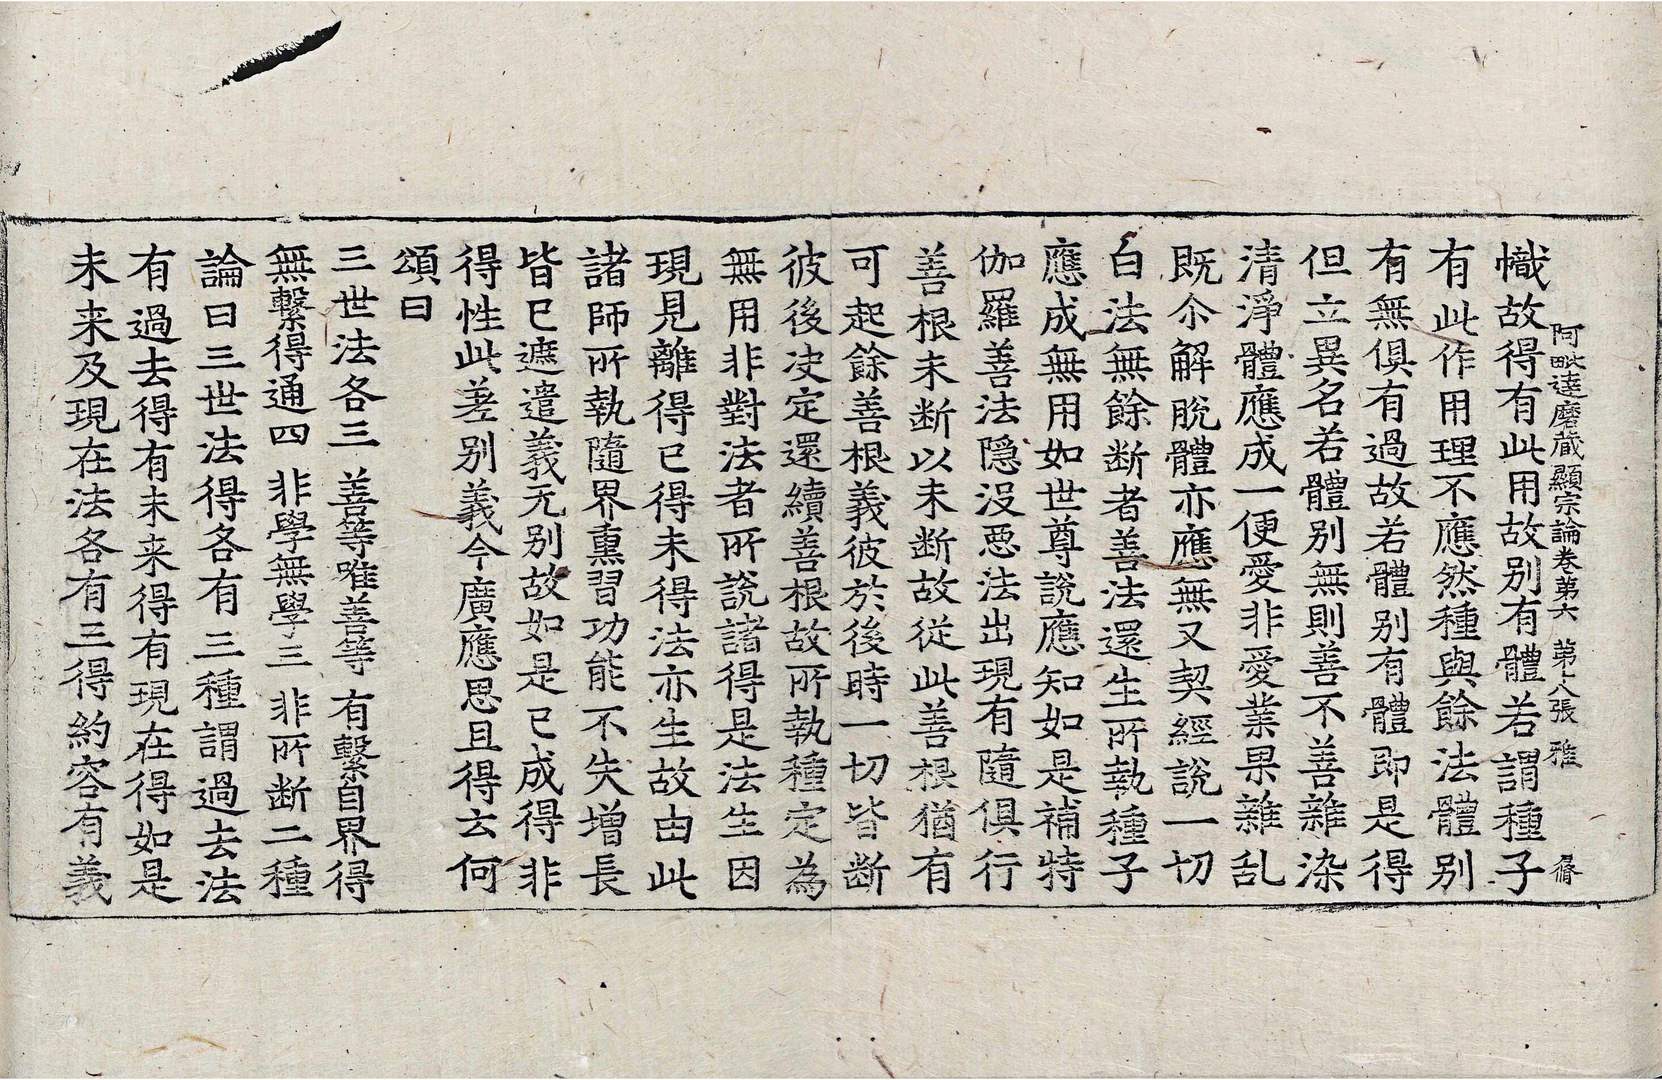 阿毗達磨藏顯宗論卷第六　第十八張　雅
幟故得有此用故別有體若謂種子
有此作用理不應然種與餘法體別
有無俱有過故若體別有體即是得
但立異名若體別無則善不善雜染
清淨體應成一便愛非愛業果雜乱
既尒解脫體亦應無又契經說一切
白法無餘断者善法還生所執種子
應成無用如世尊說應知如是補特
伽羅善法隱没惡法出現有隨俱行
善根未断以未断故從此善根猶有
可起餘善根義彼於後時一切皆断
彼後决定還續善根故所執種定為
無用非對法者所說諸得是法生因
現見離得已得未得法亦生故由此
諸師所執隨界熏習功能不失增長
皆已遮遣義无別故如是已成得非
得性此差別義今廣應思且得云何
頌曰
三世法各三　善等唯善等　有繫自界得
無繫得通四　非學無學三　非所断二種
論曰三世法得各有三種謂過去法
有過去得有未来得有現在得如是
未来及現在法各有三得約容有義